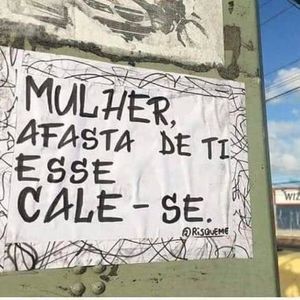 MULHER,
AFASTA DE TI
ESSE
CALE-SE.
@RISQUEME
WIZ